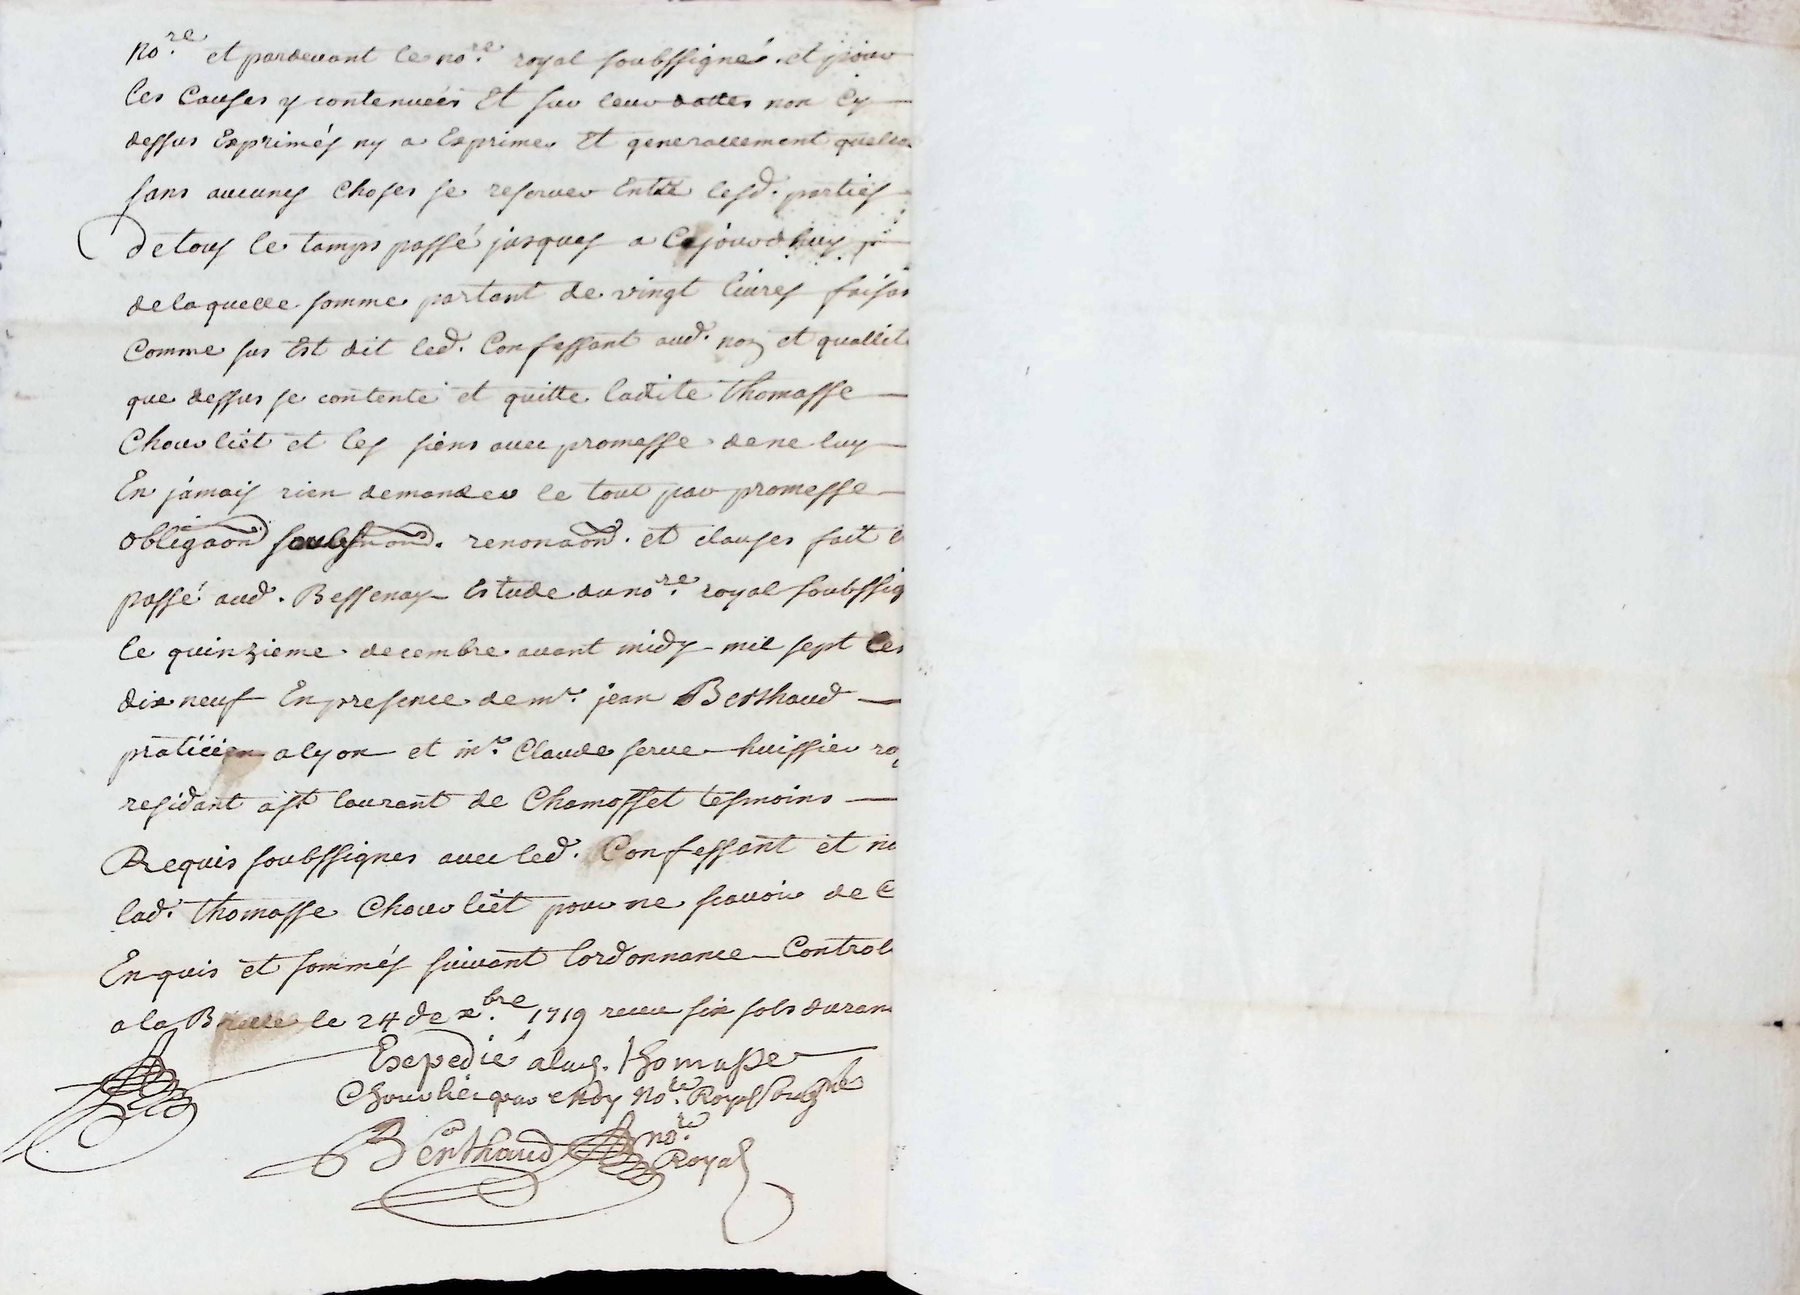 No.re et pardevant le no.re royal soubssigné et pour
les causes y contenuées et sur leur dattes non cy
dessus Exprimés ny a Exprimer Et generallement quelco
sans aucunes choses se reserver Entre lesd. parties
de tous le temps passé jusques a Cejourdhuy
de laquelle somme partant de vingt livres faisan
Comme sus Est dit led. Confessant aud. nom et quallit
que dessus se contente et quitte ladite Thomasse
Chouvliet et les siens avec promesse de ne luy
En jamais rien demander le tout par promesse
obligaon soubsmaon. renonaon. et clauses fait e
passé aud. Bessenay Estude du no.re royal soubssig
le quinzieme decembre avant midy mil sept cen
dix neuf En presence de mr. jean Berthaud
praticien a lyon et mr. Claude serve huissier ro
residant a st laurant de Chamosset tesmoins
Requis soubssignes avec led. Confessant et no
lad. Thomasse Chouvliet pour ne scavoir de c
Enquis et sommés suivant lordonnance Control
a la Bresle le 24 de xbre 1719 receu six sols duran
Exepedié a lad. Thomasse
Chouvlie par moy No.re Royal soubsné
Berthaud no.re
Royal